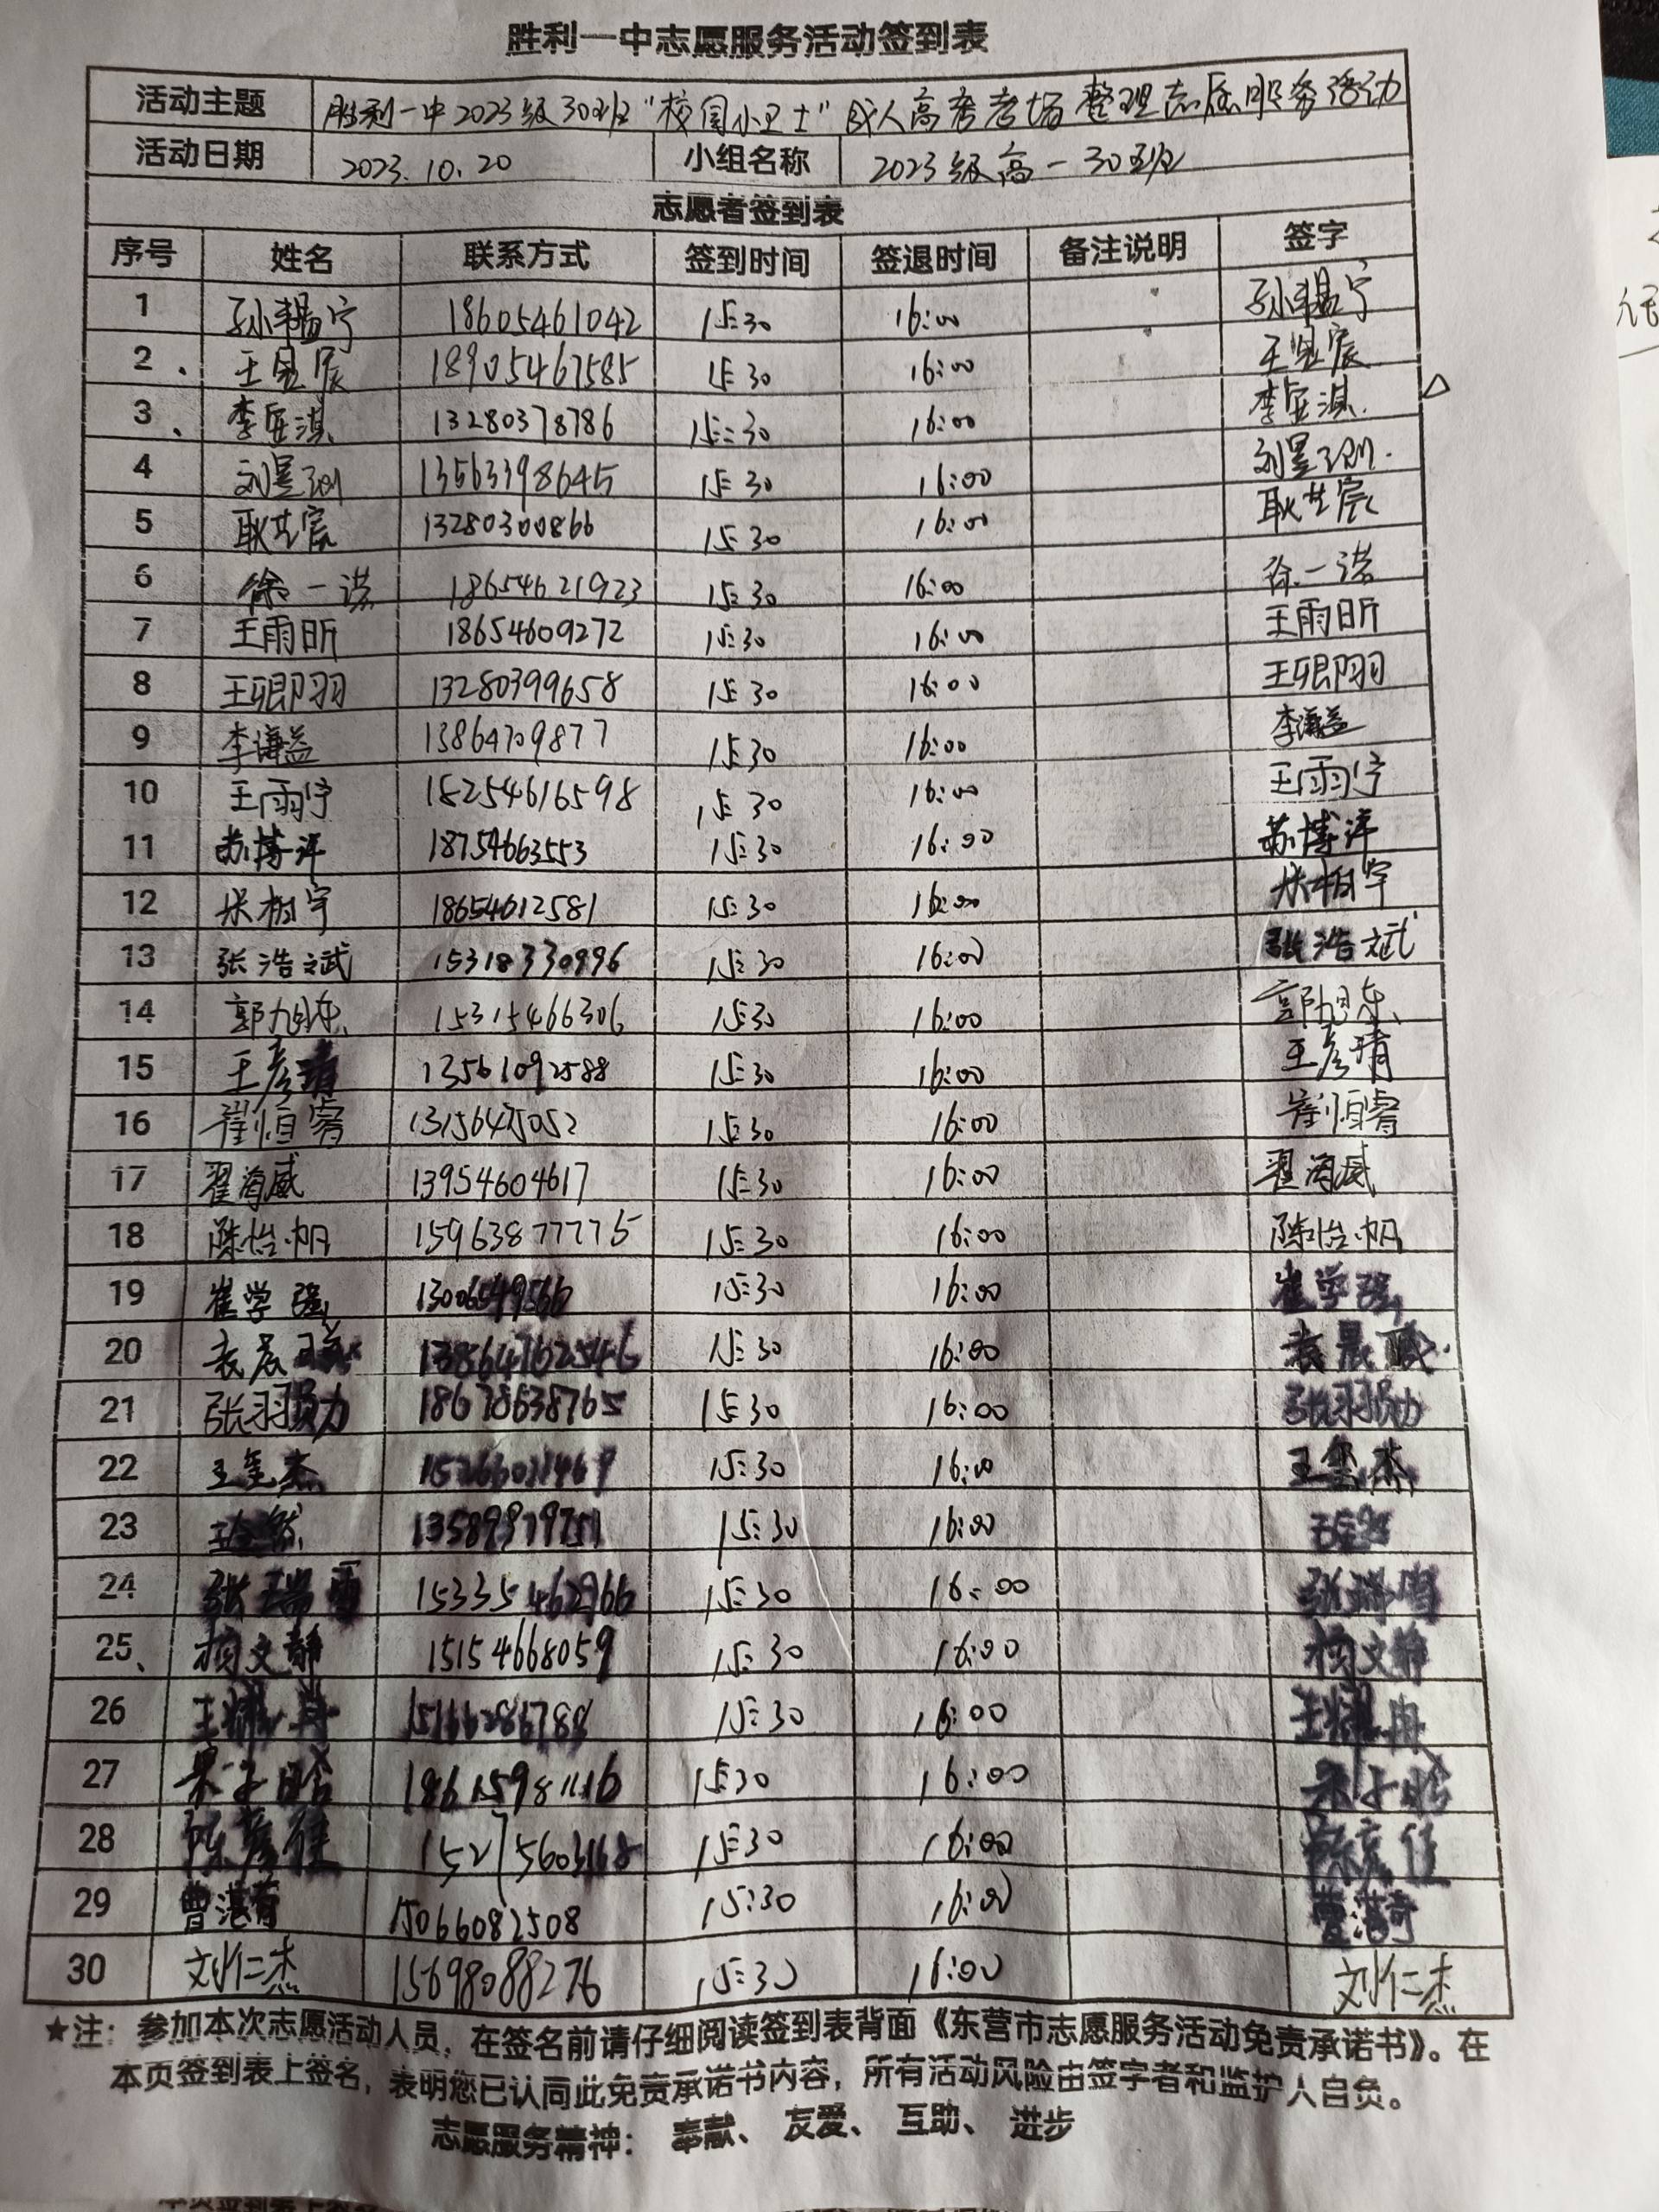 胜利一中志愿服务活动签到表
活动主题 胜利一中2023级30班"校园小卫士"成人高考考场整理志愿服务活动
活动日期 2023.10.20 小组名称 2023级高一30班
志愿者签到表
序号 姓名 联系方式 签到时间 签退时间 备注说明 签字
1 孙韫宁 18605461042 15:30 16:00 孙韫宁
2 王昱宸 18905467585 15:30 16:00 王昱宸
3 李 淇 13280378786 15:30 16:00 李 淇
4 刘昱 13563398645 15:30 16:00 刘昱
5 耿艺宸 13280300866 15:30 16:00 耿艺宸
6 徐一诺 18654621923 15:30 16:00 徐一诺
7 王雨昕 18654609272 15:30 16:00 王雨昕
8 王卿羽 13280399658 15:30 16:00 王卿羽
9 李谦益 13864709877 15:30 16:00 李谦益
10 王雨宁 18254616598 15:30 16:00 王雨宁
11 苏博洋 18754663553 15:30 16:00 苏博洋
12 米柏宇 18654612581 15:30 16:00 米柏宇
13 张浩斌 15318330996 15:30 16:00 张浩斌
14 郭旭东 15315466306 15:30 16:00 郭旭东
15 王彦晴 13561092588 15:30 16:00 王彦晴
16 崔恒睿 15:30 16:00 崔恒睿
17 翟海威 13954604617 15:30 16:00 翟海威
18 陈怡帆 15963877775 15:30 16:00 陈怡帆
19 崔学强 15:30 16:00 崔学强
20 袁晨 15:30 16:00 袁晨
21 张羽 18678638765 15:30 16:00 张羽
22 王 杰 15:30 16:00 王 杰
23 13589979751 15:30 16:00
24 张瑞雪 15335462966 15:30 16:00 张瑞雪
25 杨文静 15154668059 15:30 16:00 杨文静
26 王耀冉 15166286788 15:30 16:00 王耀冉
27 子晗 18615981116 15:30 16:00 子晗
28 陈彦佳 15275603168 15:30 16:00 陈彦佳
29 曹 15066082508 15:30 16:00 曹
30 刘仁杰 15698088276 15:30 16:00 刘仁杰
★注：参加本次志愿活动人员，在签名前请仔细阅读签到表背面《东营市志愿服务活动免责承诺书》。在
本页签到表上签名，表明您已认同此免责承诺书内容，所有活动风险由签字者和监护人自负。
志愿服务精神：奉献、友爱、互助、进步